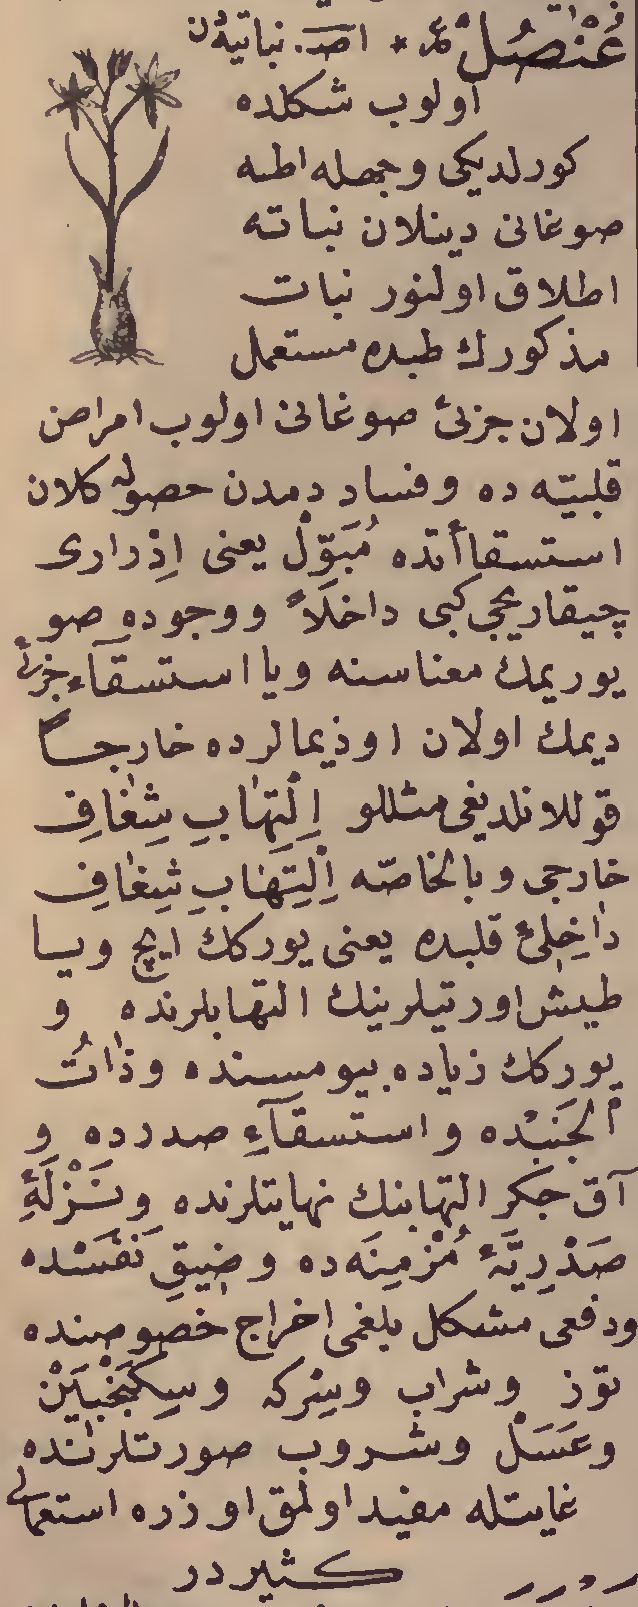 عُنْصُلْ عر * اصـ. نباتیه‌دن
اولوب شکلده
کورلدیکی وجهله اطه
صوغانی دینلان نباته
اطلاق اولنور نبات
مذکورك طبده مستعمل
اولان جزئی صوغانی اولوب امراض
قلبیّه ده وفساد دمدن حصوله کلان
استسقاأتده مُبَوِّلْ یعنی اِدْراری
چیقاریجی کبی داخلاً ووجوده صو
یوریمك معناسنه ویا استسقآء جزئی
دیمك اولان اوذیمالرده خارجاً
قوللانلدیغی مثللو اِلْتِهٰابِ شِغٰافِ
خارجی وبالخاصّه اِلْتِهٰابِ شِغٰافِ
دٰاخِلِیٔ قلبده یعنی یورکك ایچ ویا
طیش اورتیلرینك التهابلرنده و
یورکك زیاده بیومسنده وذٰاتُ
الْجَنبْده واستسقآءِ صدرده و
آق جکر التهابنك نهایتلرنده ونَزْلَهٔ
صَدْرِیَّهٔ مُزْمِنَه ده وضِیقِ نَفَسْده
ودفعی مشکل بلغمی اخراج خصوصنده
توز وشراب وسِرْکه وسِکَنْجُبَیْن
وعَسَلْ وشروب صورتلرنده
غایتله مفید اولمق اوزره استعمالی
کثیردر